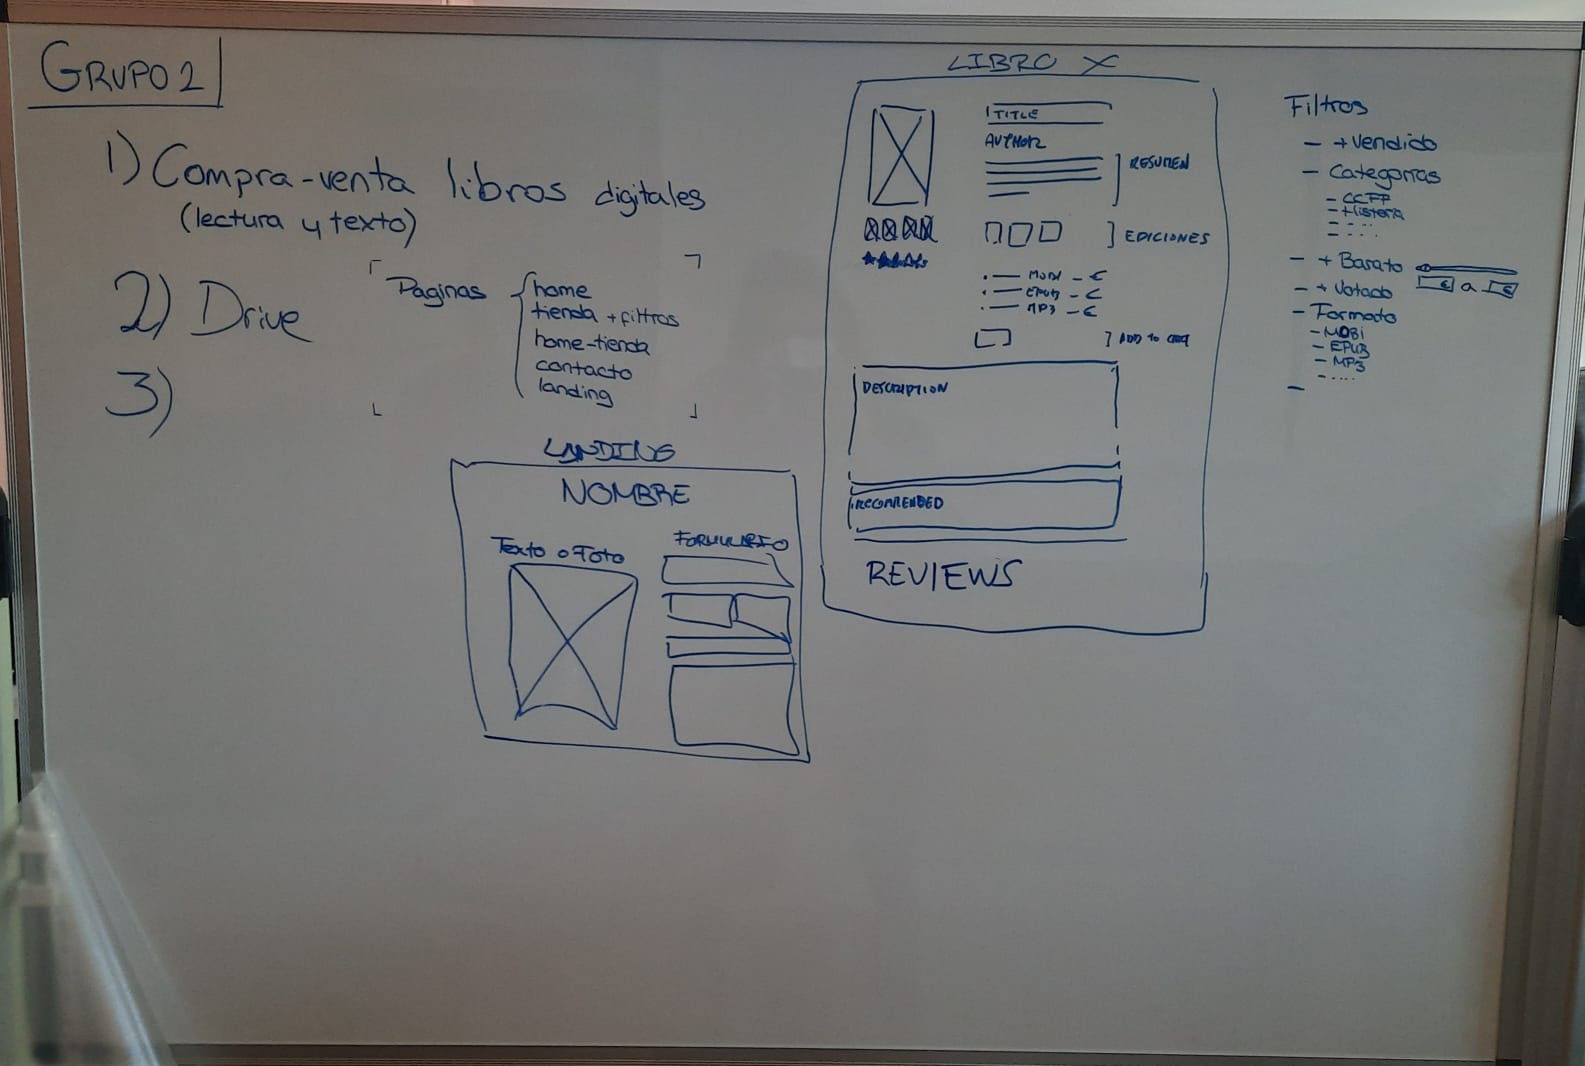 GRUPO 2
1) Compra-venta libros digitales
(lectura y texto)
2) Drive
3)
Paginas
home
tienda + filtros
home-tienda
contacto
landing
LANDING
NOMBRE
Texto o Foto
FORMULARIO
LIBRO X
TITLE
AUTHOR
RESUMEN
EDICIONES
MOBI - €
EPUB - €
MP3 - €
ADD to CART
DESCRIPTION
RECOMENDED
REVIEWS
Filtros
- + Vendido
- Categorias
- CCFF
- Historia
- ....
- ....
- + Barato
€ a €
- + Votado
- Formato
- MOBI
- EPUB
- MP3
- ....
-